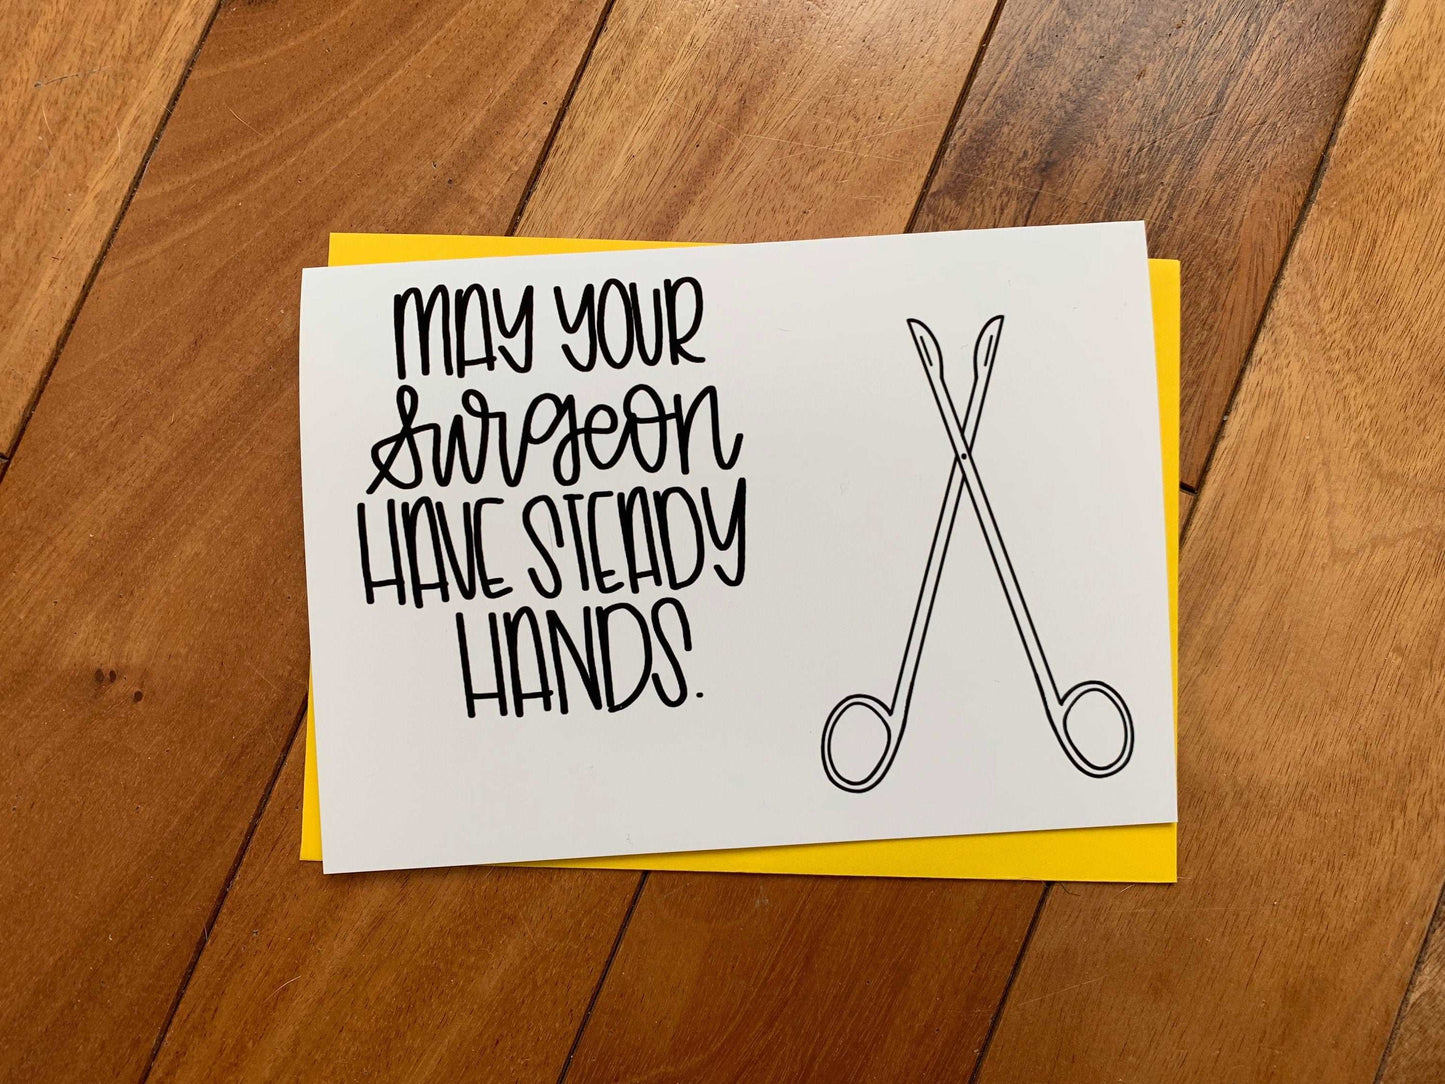 MAY YOUR
surgeon
HAVE STEADY
HANDS.